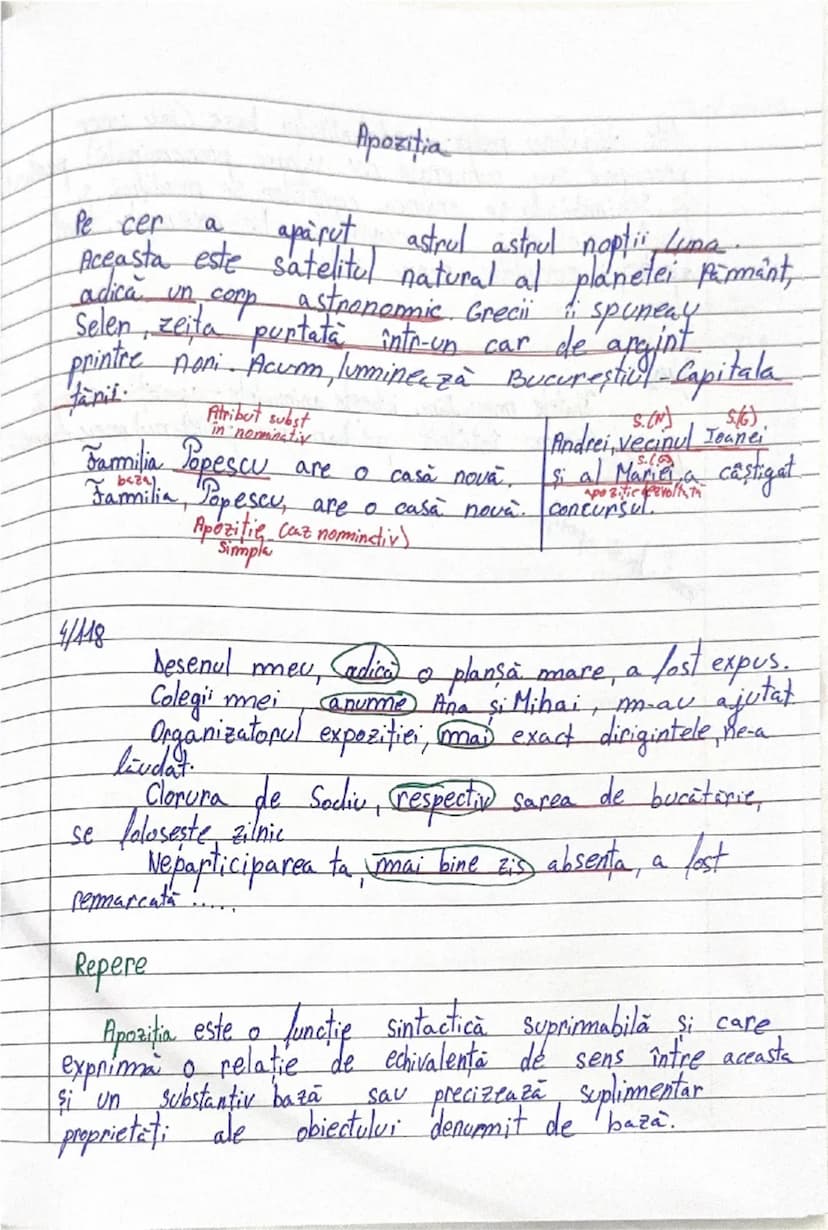 Apoziția
Pe cer a apărut, astrul astrul nopții, luna.
Aceasta este satelitul natural al planetei Pământ,
adică un corp astronomic. Grecii îi spuneau
Selen, zeița purtată într-un car de argint
printre nori. Acum, luminează Bucureștiul-Capitala
țării.
Atribut subst
în nominativ
Familia Popescu are o casă nouă.
(baza)
Familia, Popescu, are o casă nouă.
Apoziție (caz nominativ)
simpla
S.(N) S.(G)
Andrei, vecinul Ioanei
S.(G)
și al Mariei, a câștigat
apoziție dezvoltată
concursul.
4/118
Desenul meu, adică o planșă mare, a fost expus.
Colegii mei, anume Ana și Mihai, m-au ajutat
Organizatorul expoziției, mai exact dirigintele, ne-a
lăudat.
Clorura de Sodiu, respectiv sarea de bucătărie,
se folosește zilnic
Neparticiparea ta, mai bine zis absența, a fost
remarcată .....
Repere
Apoziția este o funcție sintactică suprimabilă și care
exprimă o relație de echivalență de sens între aceasta
și un substantiv bază sau precizează suplimentar
proprietăți ale obiectului denumit de bază.